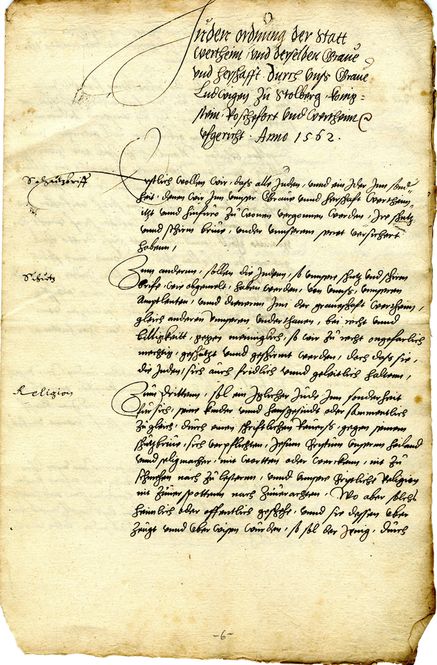 Juden ordnung der Statt
Wertheim und derselben Grave
und herschafft durch uns Grave
Ludwigen zu Stolberg, König-
stein, Roschefort und Wertheim
ufgericht. Anno 1562.
Schutzbrieff
Erstlich wollen wir, das alle Juden, unnd ein Jder Inn sonder-
heit, denen wir Inn unser Grave und herschafft Wertheim,
itzt und hinfuro zu wonen vergonnen werden, Ire schutz
unnd schirm brieve, under unserem secret versichert
habenn,
Schutz
Zum anderen, sollen die Juden, so unsere schutz und schirm
brife wie obgemelt, haben werden, von unns, unseren
Amptleuten, unnd dienern Inn der graveschafft Wertheim,
gleich anderen unseren underthanen, bei recht unnd
billigkeitt, gegen menniglich, so wir zu recht ungefarlich
mechtig, geschutzt und geschirmt werden, doch das sie,
die Juden, sich auch fridlich unnd gleidlich haltenn,
Religion
Zum Dritten, sol ein Iglicher Jude Inn sonderheit
fur sich, seine kinder unnd haussgesinde oder samentlich
zugleich, durch einen schrifftlichen Reverss, gegen seinem
schutzbrive, sich verpflichten, Jesum Christum unseren heiland
unnd seligmacher, mit wortten oder wercken, nit zu
schmehen noch zu lesteren, unnd unsere Christliche Religion
nit zuverspotten noch zuverachten, Wo aber solchs
heimlich oder offentlich geschehe, unnd sie dessen uber
zeugt unnd uber wisen wurden, so sol der Jenig, durch
-6-